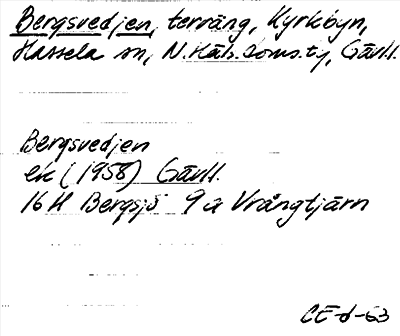 Bergsvedjen, terräng, Kyrkbyn,
Hassela sn, N. Häls. doms. ty, Gävl.
Bergsvedjen
ek (1958) Gävl.
16 H Bergsjö 9 a Vrångtjärn
CE-d-63